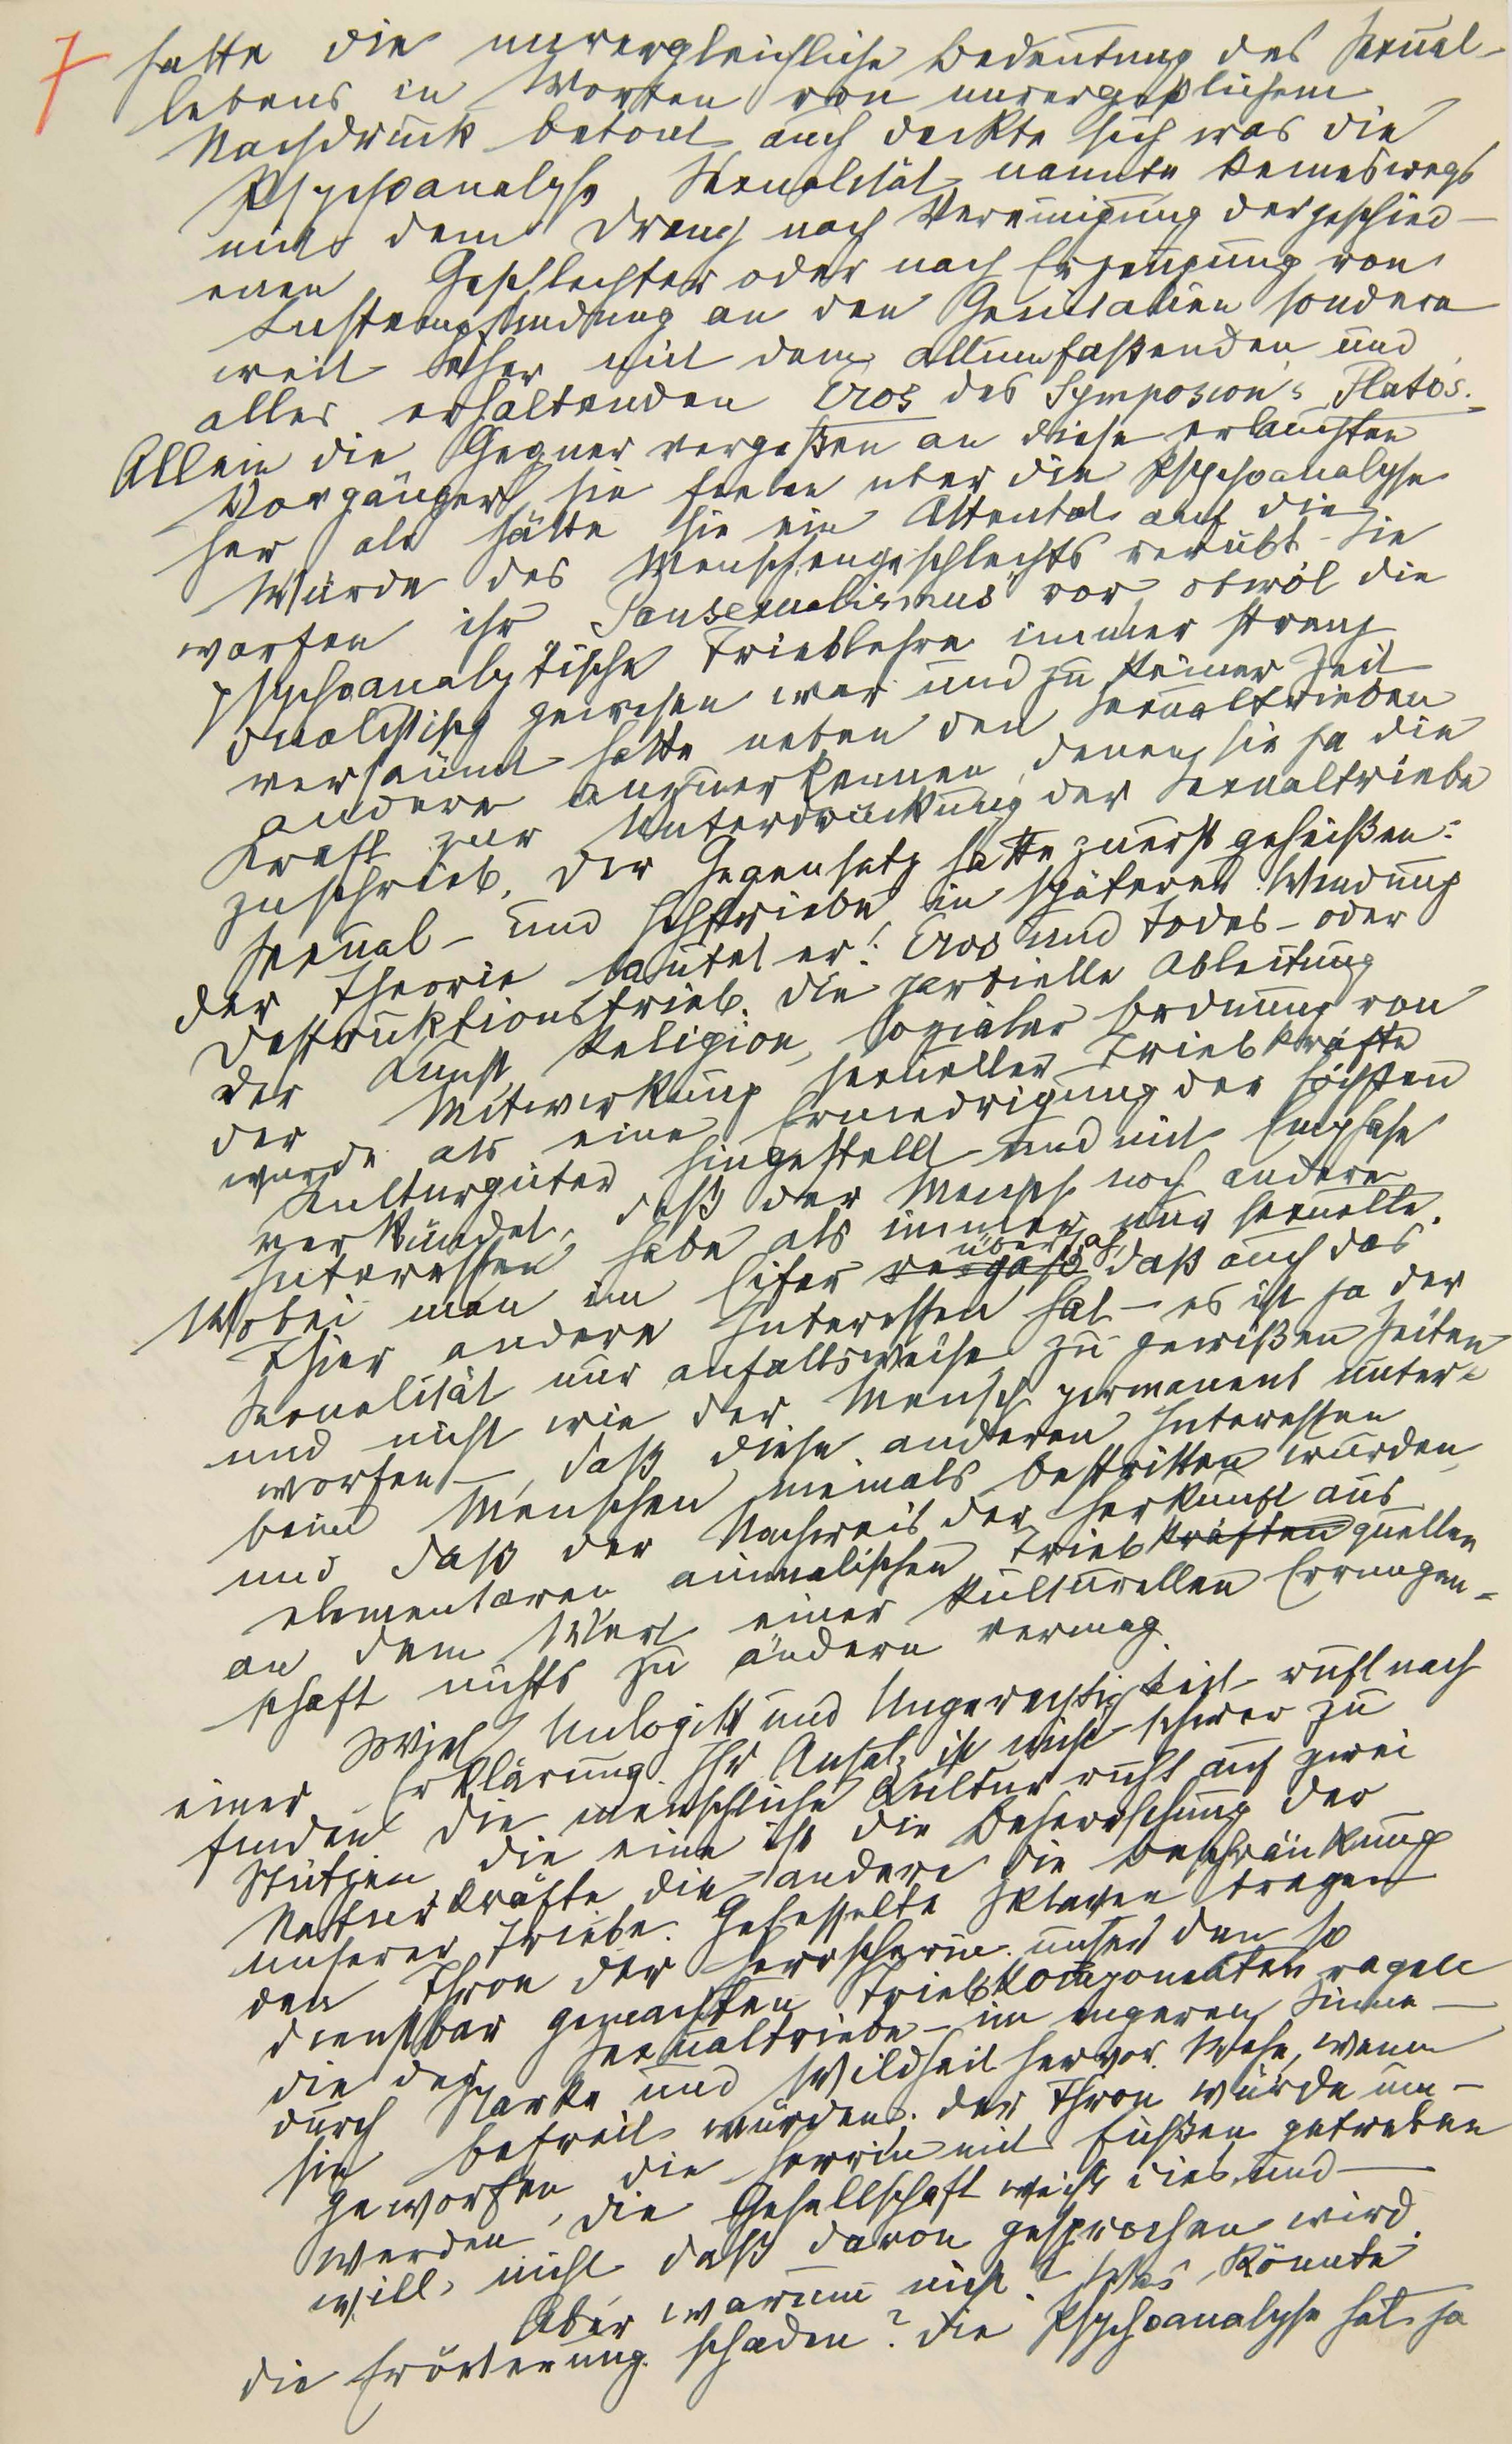 7 hatte die unvergleichliche Bedeutung des Sexual-
lebens in Worten von unvergeßlichem
Nachdruck betont auch deckte sich was die
Psychoanalyse Sexualität nannte keineswegs
mit dem Drang nach Vereinigung der geschied-
enen Geschlechter oder nach Erzeugung von
Lustempfindung an den Genitalien sondern
weit eher mit dem allumfaßenden und
alles erhaltenden Eros des Symposion's Platos.
Allein die Gegner vergaßen an diese erlauchten
Vorgänger, sie fielen über die Psychoanalyse
her als hätte sie ein Attentat auf die
Würde des Menschengeschlechts verübt. Sie
warfen ihr „Pansexualismus" vor, obwol die
psychoanalytische Trieblehre immer streng
dualistisch gewesen war und zu keiner Zeit
versäumt hatte neben den Sexualtrieben
andere anzuerkennen, denen sie ja die
Kraft zur Unterdrückung der Sexualtriebe
zuschrieb. Der Gegensatz hatte zuerst geheißen:
Sexual- und Ichtriebe, in späterer Wendung
der Theorie lautet er: Eros und Todes- oder
Destruktionstrieb. Die partielle Ableitung
der Kunst, Religion, sozialer Ordnung von
der Mitwirkung sexueller Triebkräfte
wurde als eine Erniedrigung der höchsten
Kulturgüter hingestellt und mit Emphase
verkündet, daß der Mensch noch andere
Interessen habe als immer nur sexuelle.
Wobei man im Eifer vergaß übersah, daß auch das
Thier andere Interessen hat – es ist ja der
Sexualität nur anfallsweise zu gewißen Zeiten
und nicht wie der Mensch permanent unter-
worfen –, daß diese anderen Interessen
beim Menschen niemals bestritten wurden
und daß der Nachweis der Herkunft aus
elementaren animalischen Triebkräften quellen
an dem Wert einer kulturellen Errungen-
schaft nichts zu ändern vermag.
Soviel Unlogik und Ungerechtigkeit ruft nach
einer Erklärung. Ihr Ansatz ist nicht schwer zu
finden. Die menschliche Kultur ruht auf zwei
Stützen, die eine ist die Beherrschung der
Naturkräfte, die andere die Beschränkung
unserer Triebe. Gefesselte Sklaven tragen
den Thron der Herrscherin. Unter den so
dienstbar gemachten Triebkomponenten ragen
die der Sexualtriebe – im engeren Sinne –
durch Stärke und Wildheit hervor. Wehe, wenn
sie befreit würden; der Thron würde um-
geworfen, die Herrin mit Füßen getreten
werden, die Gesellschaft weiß dies und –
will nicht daß davon gesprochen wird.
Aber warum nicht? Was könnte
die Erörterung schaden? Die Psychoanalyse hat ja